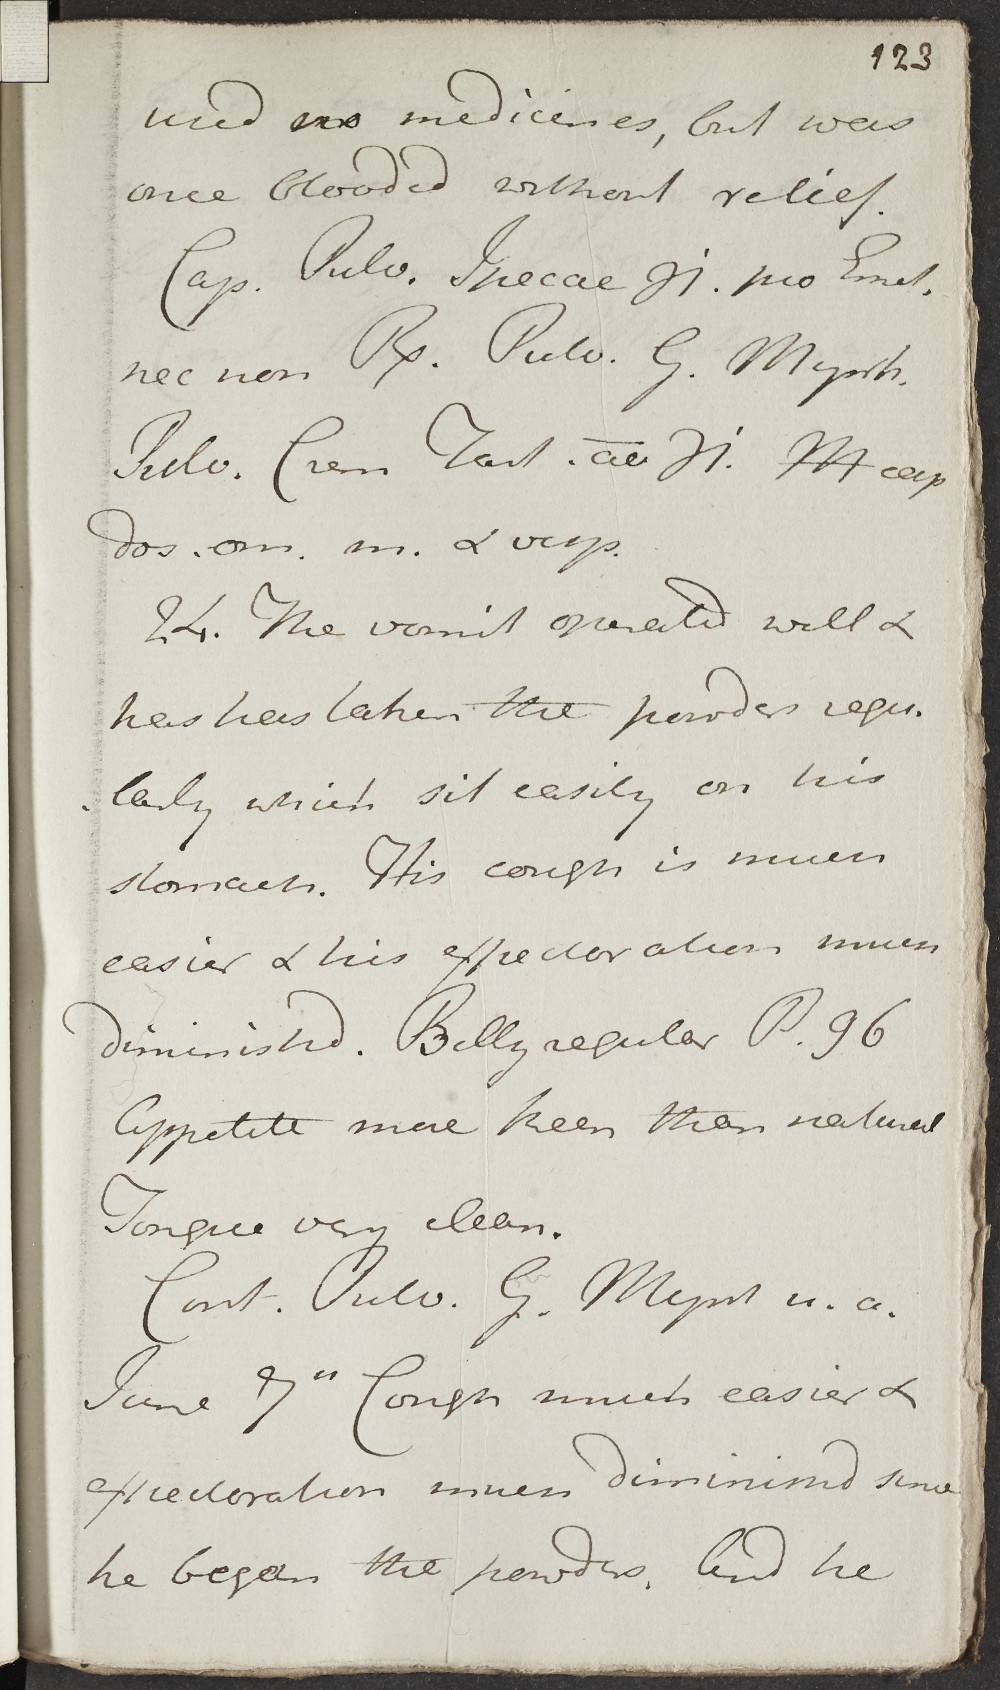 123
used no medicines, but was
once blooded without relief.
Cap. Pulv. Ipecac ℈j. pro Emet.
nec non Rx. Pulv. G. Myrrh.
Pulv. Crem Tart. āā ℈j. M cap
dos. om. m. & vesp.
24. The vomit operated well &
has has taken the powders regu-
larly which sit easily on his
stomach. His cough is much
easier & his expectoration much
diminished. Belly regular P. 96
Appetite more keen than natural
Tongue very clean.
Cont. Pulv. G. Myrrh u. a.
June 7" Cough much easier &
expectoration much diminished since
he began the powders. And he